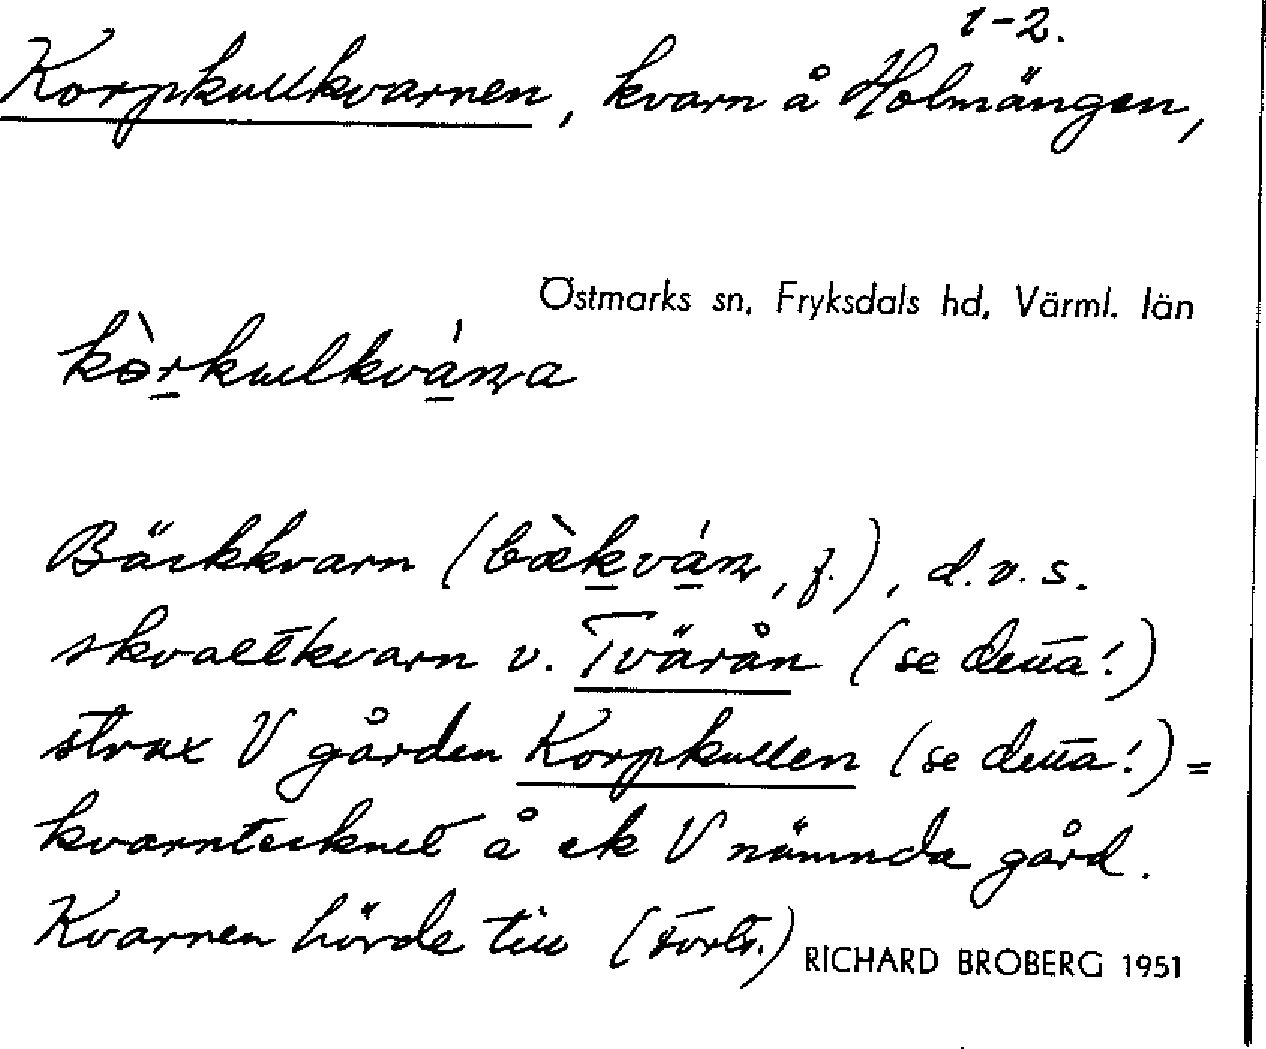 1-2.
Korpkullkvarnen, kvarn å Holmängen,
Östmarks sn, Fryksdals hd, Värml. län
kòrkullkváṇa
Bäckkvarn (bækváṇ, f.), d.v.s.
skvaltkvarn v. Tvärån (se detta!)
strax V gården Korpkullen (se detta!) =
kvarntecknet å ek V nämnda gård.
Kvarnen hörde till (forts.) RICHARD BROBERG 1951